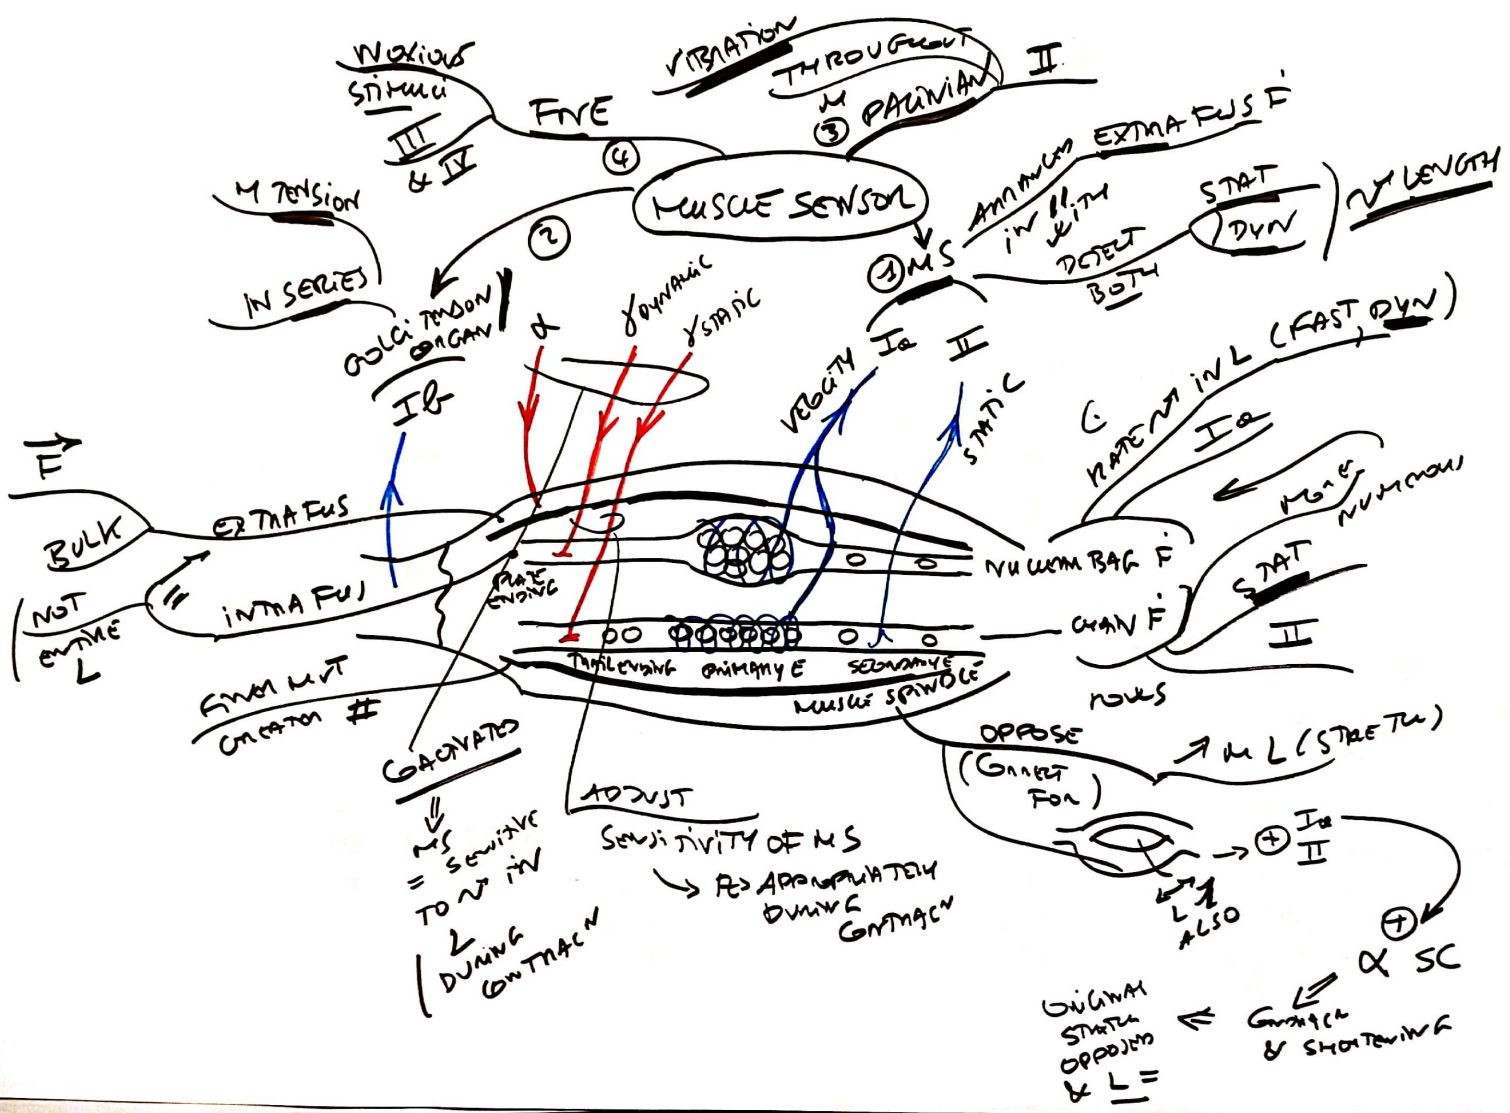 NOXIOUS
STIMULI
III
& IV
FNE
④
VIBRATION
THROUGHOUT
M
③ PACINIAN
II
MUSCLE SENSOR
M TENSION
IN SERIES
②
GOLGI TENDON
ORGAN
Ib
① MS
ARRANGED
IN // WITH
EXTRA FUS F
DETECT
BOTH
STAT
DYN
LENGTH
Ia
II
α
γ DYNAMIC
γ STATIC
VELOCITY
STATIC
RATE IN L (FAST, DYN)
Ia
MORE
NUMEROUS
F
BULK
EXTRA FUS
INTRA FUS
NOT
ENTIRE
L
FINER MVT
GREATER #
PLATE
ENDING
TRAIL ENDING
PRIMARY E
SECONDARY E
MUSCLE SPINDLE
NUCLEAR BAG F
CHAIN F
STAT
II
COACTIVATED
⇓
MS
= SENSITIVE
TO IN
L
DURING
CONTRACN
ADJUST
SENSITIVITY OF MS
→ APPROPRIATELY
DURING
CONTRACN
OPPOSE
(CORRECT
FOR)
↗ M L (STRETCH)
L
ALSO
→ ⊕ Ia
II
⊕
α SC
CONTRACN
& SHORTENING
ORIGINAL
STRETCH
OPPOSED
& L =